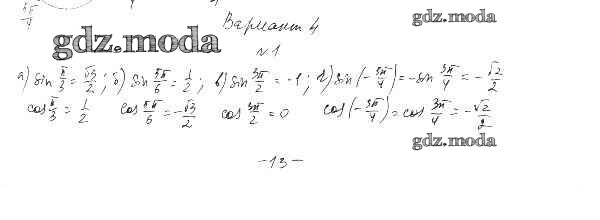 5π/4
Вариант 4
gdz.moda
gdz.moda
№1
а) sin π/3 = √3/2; б) sin 5π/6 = 1/2; в) sin 3π/2 = -1; г) sin(-3π/4) = -sin 3π/4 = -√2/2
cos π/3 = 1/2 cos 5π/6 = -√3/2 cos 3π/2 = 0 cos(-3π/4) = cos 3π/4 = -√2/2
gdz.moda
-13-